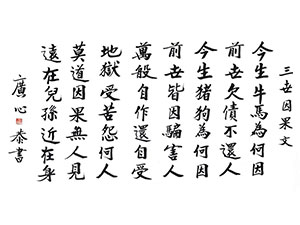 三世因果文
今生牛馬為何因
前世欠債不還人
今生猪狗為何因
前世皆因騙害人
萬般自作還自受
地獄受苦怨何人
莫道因果無人見
遠在兒孫近在身
廣心泰書